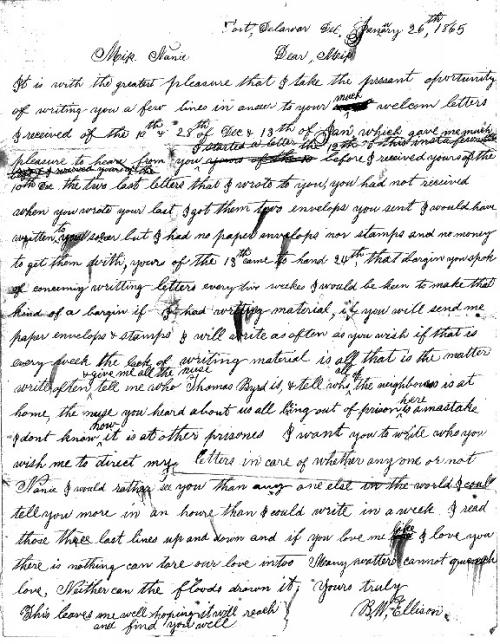 Fort, Delawar Del. Janury 26,th 1865
Miss. Nanie Dear, Miss
It is with the greatest pleasure that I take the presant oportunity
of writing you a few lines in anser to your much welcom letters
I received of the 10th & 28th of Dec & 13th of Jan, which gave me much
I started a letter the 12th of this inst
pleasure to heare from you yours of the 10 before I received yours of the
10th Dec the two last letters that I wrote to you, you had not received
when you wrote your last I got them two envelops you sent I would have
written to you soner but I had no paper envelops nor stamps and no money
to get them with, yours of the 13th came to hand 24th, that bargin you spok
of concerning writting letters every two weekes I would be keen to make that
kind of a bargin if I had writing material, if you will send me
paper envelops & stamps I will write as often as you wish if that is
every week the lack of writing material is all that is the matter
& give me all the nuse all of
write often, tell me who Thomas Byrd is, & tell who the neighbours is at
home, the nuse you heard about us all being out of prison here is amastake
I dont know how it is at other prisones I want you to write who you
wish me to direct my letters in care of whether any one or not
Nanie I would rather see you than any one else in the world I could
tell you more in an houre than I could write in a week. I read
those three last lines up and down and if you love me like I love you
there is nothing can tare our love in too Many watters cannot quench
love, Neither can the floods drown it, Yours truly
This leaves me well hoping it will reach B. W. Ellison.
and find you well